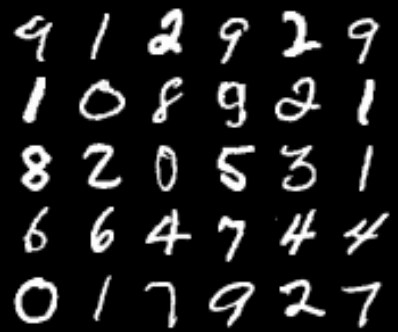 9 1 2 9 2 9
1 0 8 9 2 1
8 2 0 5 3 1
6 6 4 7 4 4
0 1 7 9 2 7